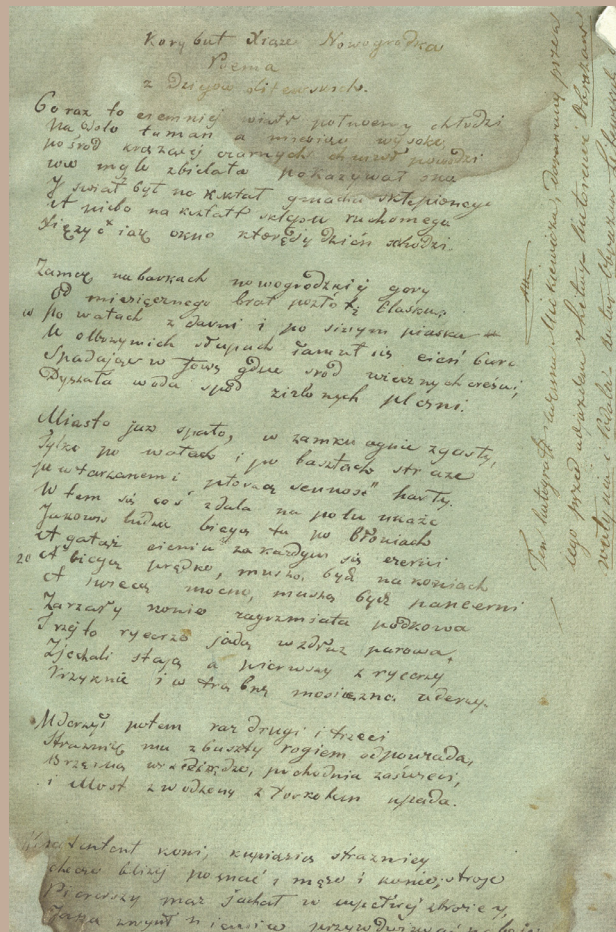 Korybut Xiąże Nowogródka
Poema
z Dziejow litewskich.
Coraz to ciemniej wiatr pułnocny chłodzi
Na dole tuman a miesiąc wysoko
pośród krążącej czarnych chmur powodzi
we mgle zbielała pokazywał
I swiat był na kształt gmachu sklepionego
A niebo na kształt sklepu ruchomego
Xiężyc iak okno którędy dzień schodzi.
Zamek na barkach nowogrodzkiej gory
Od miesięcznego brał pozłotę blasku;
Po wałach z darni i po sinym piasku
W olbrzymich słupach łamał się cień bury
Spadając w fosę gdzie sród wiecznych cieśni,
Dyszała woda spod zielonych pleśni.
Miasto już spało, w zamku ognie zgasły,
Tylko po wałach i po basztach straże
powtarzanemi płoszą senność hasły.
W tem się coś zdala na polu ukaże
Jakowiś ludzie biegą tu po błoniach
A gałąź cieniu za każdym się czerni
20 A biegą prędko, muszą być na koniach
A swiecą mocno, muszą być pancerni
Zarżały konie zagrzmiała podkowa
Trzej to rycerze jadą wzdłuż parowa,
Zjechali stają a pierwszy z rycerzy
Krzyknie i w trąbkę mosiężną uderzy.
Uderzył potem raz drugi i trzeci
Strażnik mu z baszty rogiem odpowiada,
Brzękną wrzeciądze, pochodnia zaświeci,
i Most zwodzony z łoskotem upada.
Na tentent koni, kupią się strażnicy
chcąc bliżej poznać i męże i konie, stroje
Pierwszy mąż jachał w zupełnej zbroicy,
Jaką zwykł Niemiec przywdziewać na boje
Ten Autograf Adama Mickiewicza, darowany przez
tego przed odjazdem z Litwy Antoniemu